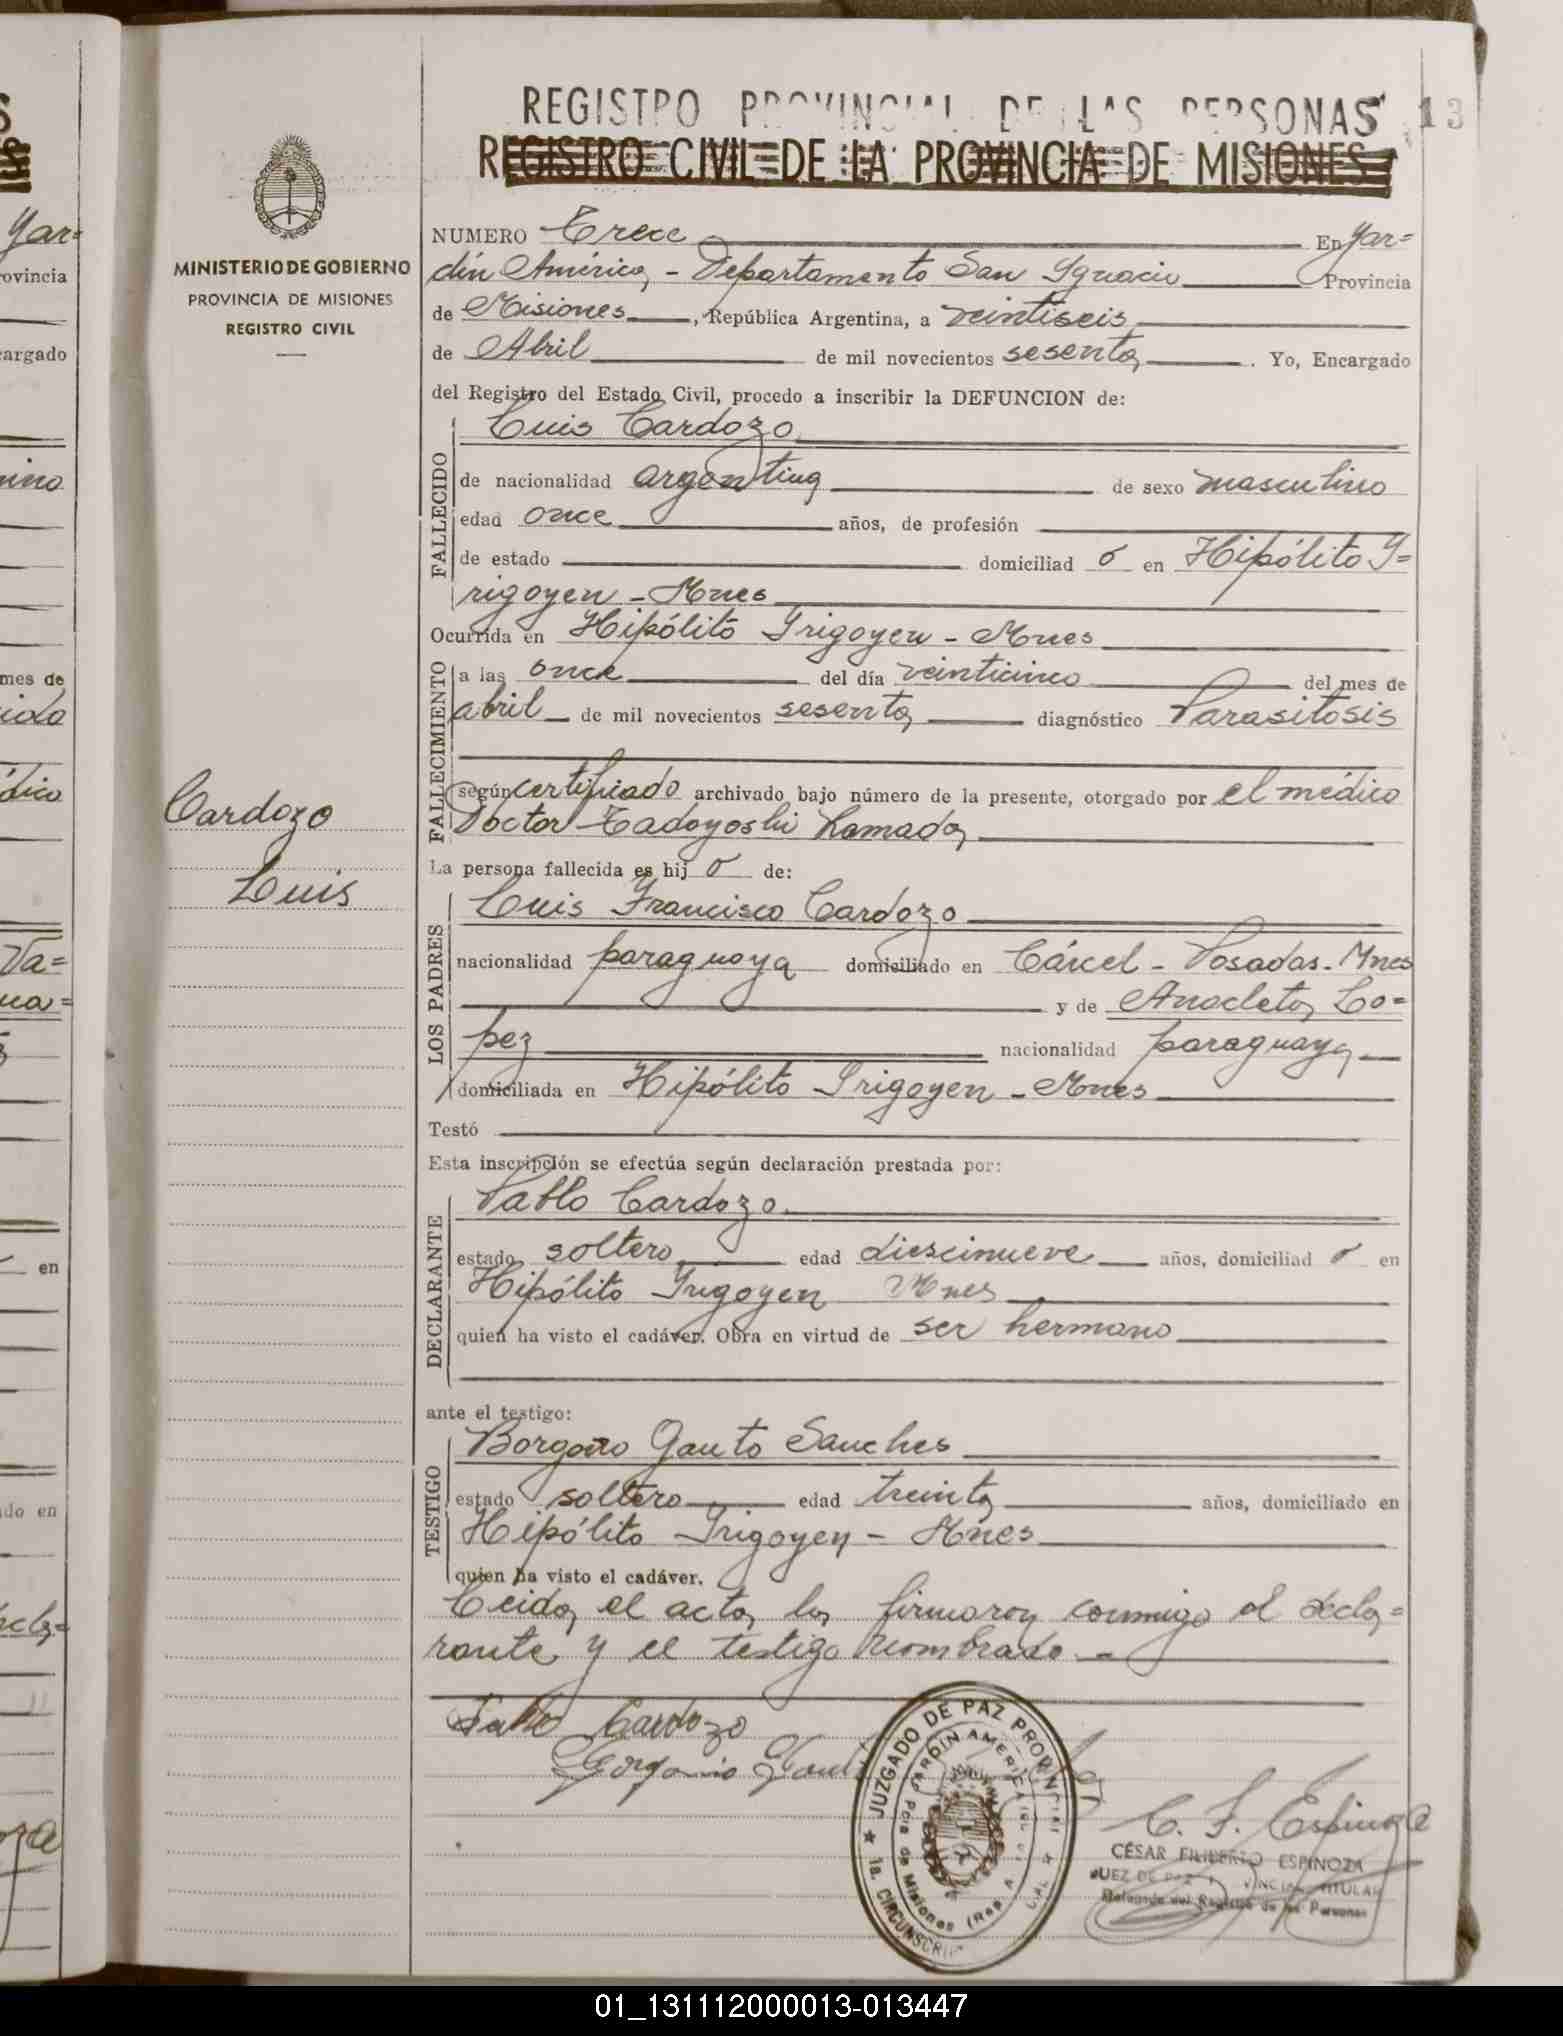 REGISTRO PROVINCIAL DE LAS PERSONAS 13
REGISTRO CIVIL DE LA PROVINCIA DE MISIONES
MINISTERIO DE GOBIERNO
PROVINCIA DE MISIONES
REGISTRO CIVIL
Cardozo
Luis
NUMERO Trece En Jar=
dín América, - Departamento San Ignacio Provincia
de Misiones, República Argentina, a veintiseis
de Abril de mil novecientos sesenta. Yo, Encargado
del Registro del Estado Civil, procedo a inscribir la DEFUNCION de:
FALLECIDO
Luis Cardozo
de nacionalidad argentina de sexo masculino
edad once años, de profesión
de estado domiciliad o en Hipólito Y=
rigoyen - Mnes
Ocurrida en Hipólito Yrigoyen - Mnes
FALLECIMIENTO
a las once del día veinticinco del mes de
abril de mil novecientos sesenta diagnóstico Parasitosis
según certificado archivado bajo número de la presente, otorgado por el médico
Doctor Tadoyoshi
La persona fallecida es hij o de:
LOS PADRES
Luis Francisco Cardozo
nacionalidad paraguaya domiciliado en Cárcel - Posadas - Mnes
y de Anacleta Lo=
pez nacionalidad paraguaya
domiciliada en Hipólito Yrigoyen - Mnes
Testó
Esta inscripción se efectúa según declaración prestada por:
DECLARANTE
Pablo Cardozo
estado soltero edad diescinueve años, domiciliad o en
Hipólito Yrigoyen Mnes
quien ha visto el cadáver. Obra en virtud de ser hermano
ante el testigo:
TESTIGO
Gauto Sanches
estado soltero edad treinta años, domiciliado en
Hipólito Yrigoyen - Mnes
quien ha visto el cadáver.
Leida el acta, la firmaron conmigo el decla=
rante y el testigo nombrado -
Pablo Cardozo
Gorgonio
JUZGADO DE PAZ PROVINCIAL
JARDIN AMERICA
Pcia de Misiones (Rep. A
1a. CIRCUNSCRIP
C. F. Espinoza
CÉSAR FILIBERTO ESPINOZA
JUEZ DE PAZ PROVINCIAL TITULAR
del Registro de las Personas
Yar=
ovincia
argado
mes de
Va=
en
do en
01_131112000013-013447